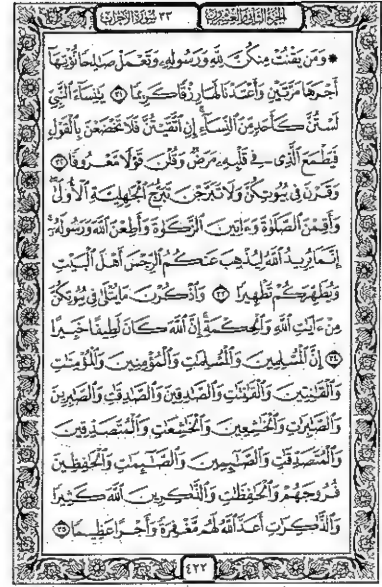 الجزء الثاني والعشرون
٣٣ سورة الأحزاب
۞ وَمَن يَقْنُتْ مِنكُنَّ لِلَّهِ وَرَسُولِهِۦ وَتَعْمَلْ صَٰلِحًا نُّؤْتِهَآ
أَجْرَهَا مَرَّتَيْنِ وَأَعْتَدْنَا لَهَا رِزْقًا كَرِيمًا ٣١ يَٰنِسَآءَ ٱلنَّبِيِّ
لَسْتُنَّ كَأَحَدٍ مِّنَ ٱلنِّسَآءِ إِنِ ٱتَّقَيْتُنَّ فَلَا تَخْضَعْنَ بِٱلْقَوْلِ
فَيَطْمَعَ ٱلَّذِي فِي قَلْبِهِۦ مَرَضٌ وَقُلْنَ قَوْلًا مَّعْرُوفًا ٣٢
وَقَرْنَ فِي بُيُوتِكُنَّ وَلَا تَبَرَّجْنَ تَبَرُّجَ ٱلْجَٰهِلِيَّةِ ٱلْأُولَىٰ
وَأَقِمْنَ ٱلصَّلَوٰةَ وَءَاتِينَ ٱلزَّكَوٰةَ وَأَطِعْنَ ٱللَّهَ وَرَسُولَهُۥٓ
إِنَّمَا يُرِيدُ ٱللَّهُ لِيُذْهِبَ عَنكُمُ ٱلرِّجْسَ أَهْلَ ٱلْبَيْتِ
وَيُطَهِّرَكُمْ تَطْهِيرًا ٣٣ وَٱذْكُرْنَ مَا يُتْلَىٰ فِي بُيُوتِكُنَّ
مِنْ ءَايَٰتِ ٱللَّهِ وَٱلْحِكْمَةِ إِنَّ ٱللَّهَ كَانَ لَطِيفًا خَبِيرًا
٣٤ إِنَّ ٱلْمُسْلِمِينَ وَٱلْمُسْلِمَٰتِ وَٱلْمُؤْمِنِينَ وَٱلْمُؤْمِنَٰتِ
وَٱلْقَٰنِتِينَ وَٱلْقَٰنِتَٰتِ وَٱلصَّٰدِقِينَ وَٱلصَّٰدِقَٰتِ وَٱلصَّٰبِرِينَ
وَٱلصَّٰبِرَٰتِ وَٱلْخَٰشِعِينَ وَٱلْخَٰشِعَٰتِ وَٱلْمُتَصَدِّقِينَ
وَٱلْمُتَصَدِّقَٰتِ وَٱلصَّٰٓئِمِينَ وَٱلصَّٰٓئِمَٰتِ وَٱلْحَٰفِظِينَ
فُرُوجَهُمْ وَٱلْحَٰفِظَٰتِ وَٱلذَّٰكِرِينَ ٱللَّهَ كَثِيرًا
وَٱلذَّٰكِرَٰتِ أَعَدَّ ٱللَّهُ لَهُم مَّغْفِرَةً وَأَجْرًا عَظِيمًا ٣٥
٤٢٢